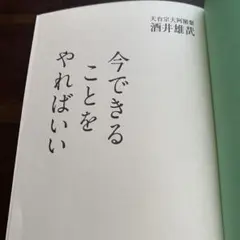 天台宗大阿闍梨
酒井雄哉
今できる
ことを
やればいい